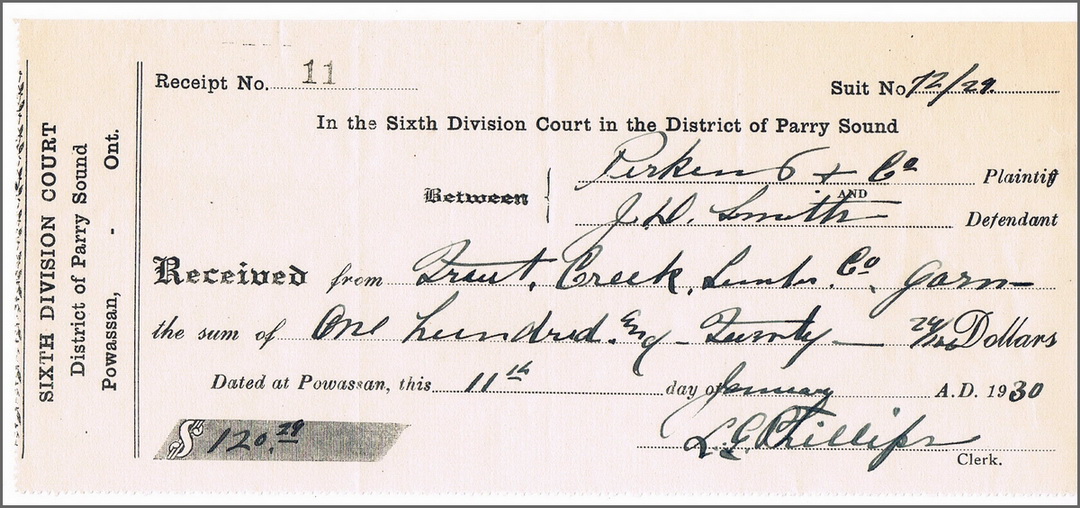 SIXTH DIVISION COURT
District of Parry Sound
Powassan, - Ont.
Receipt No. 11
Suit No 72/29.
In the Sixth Division Court in the District of Parry Sound
& Co Plaintiff
Between AND
J. D. Smith Defendant
Received from Trout Creek Co. Garn—
the sum of One hundred and Twenty — /100 Dollars
Dated at Powassan, this 11th day of January A.D. 1930
$ 120.29
L. G. Phillips
Clerk.